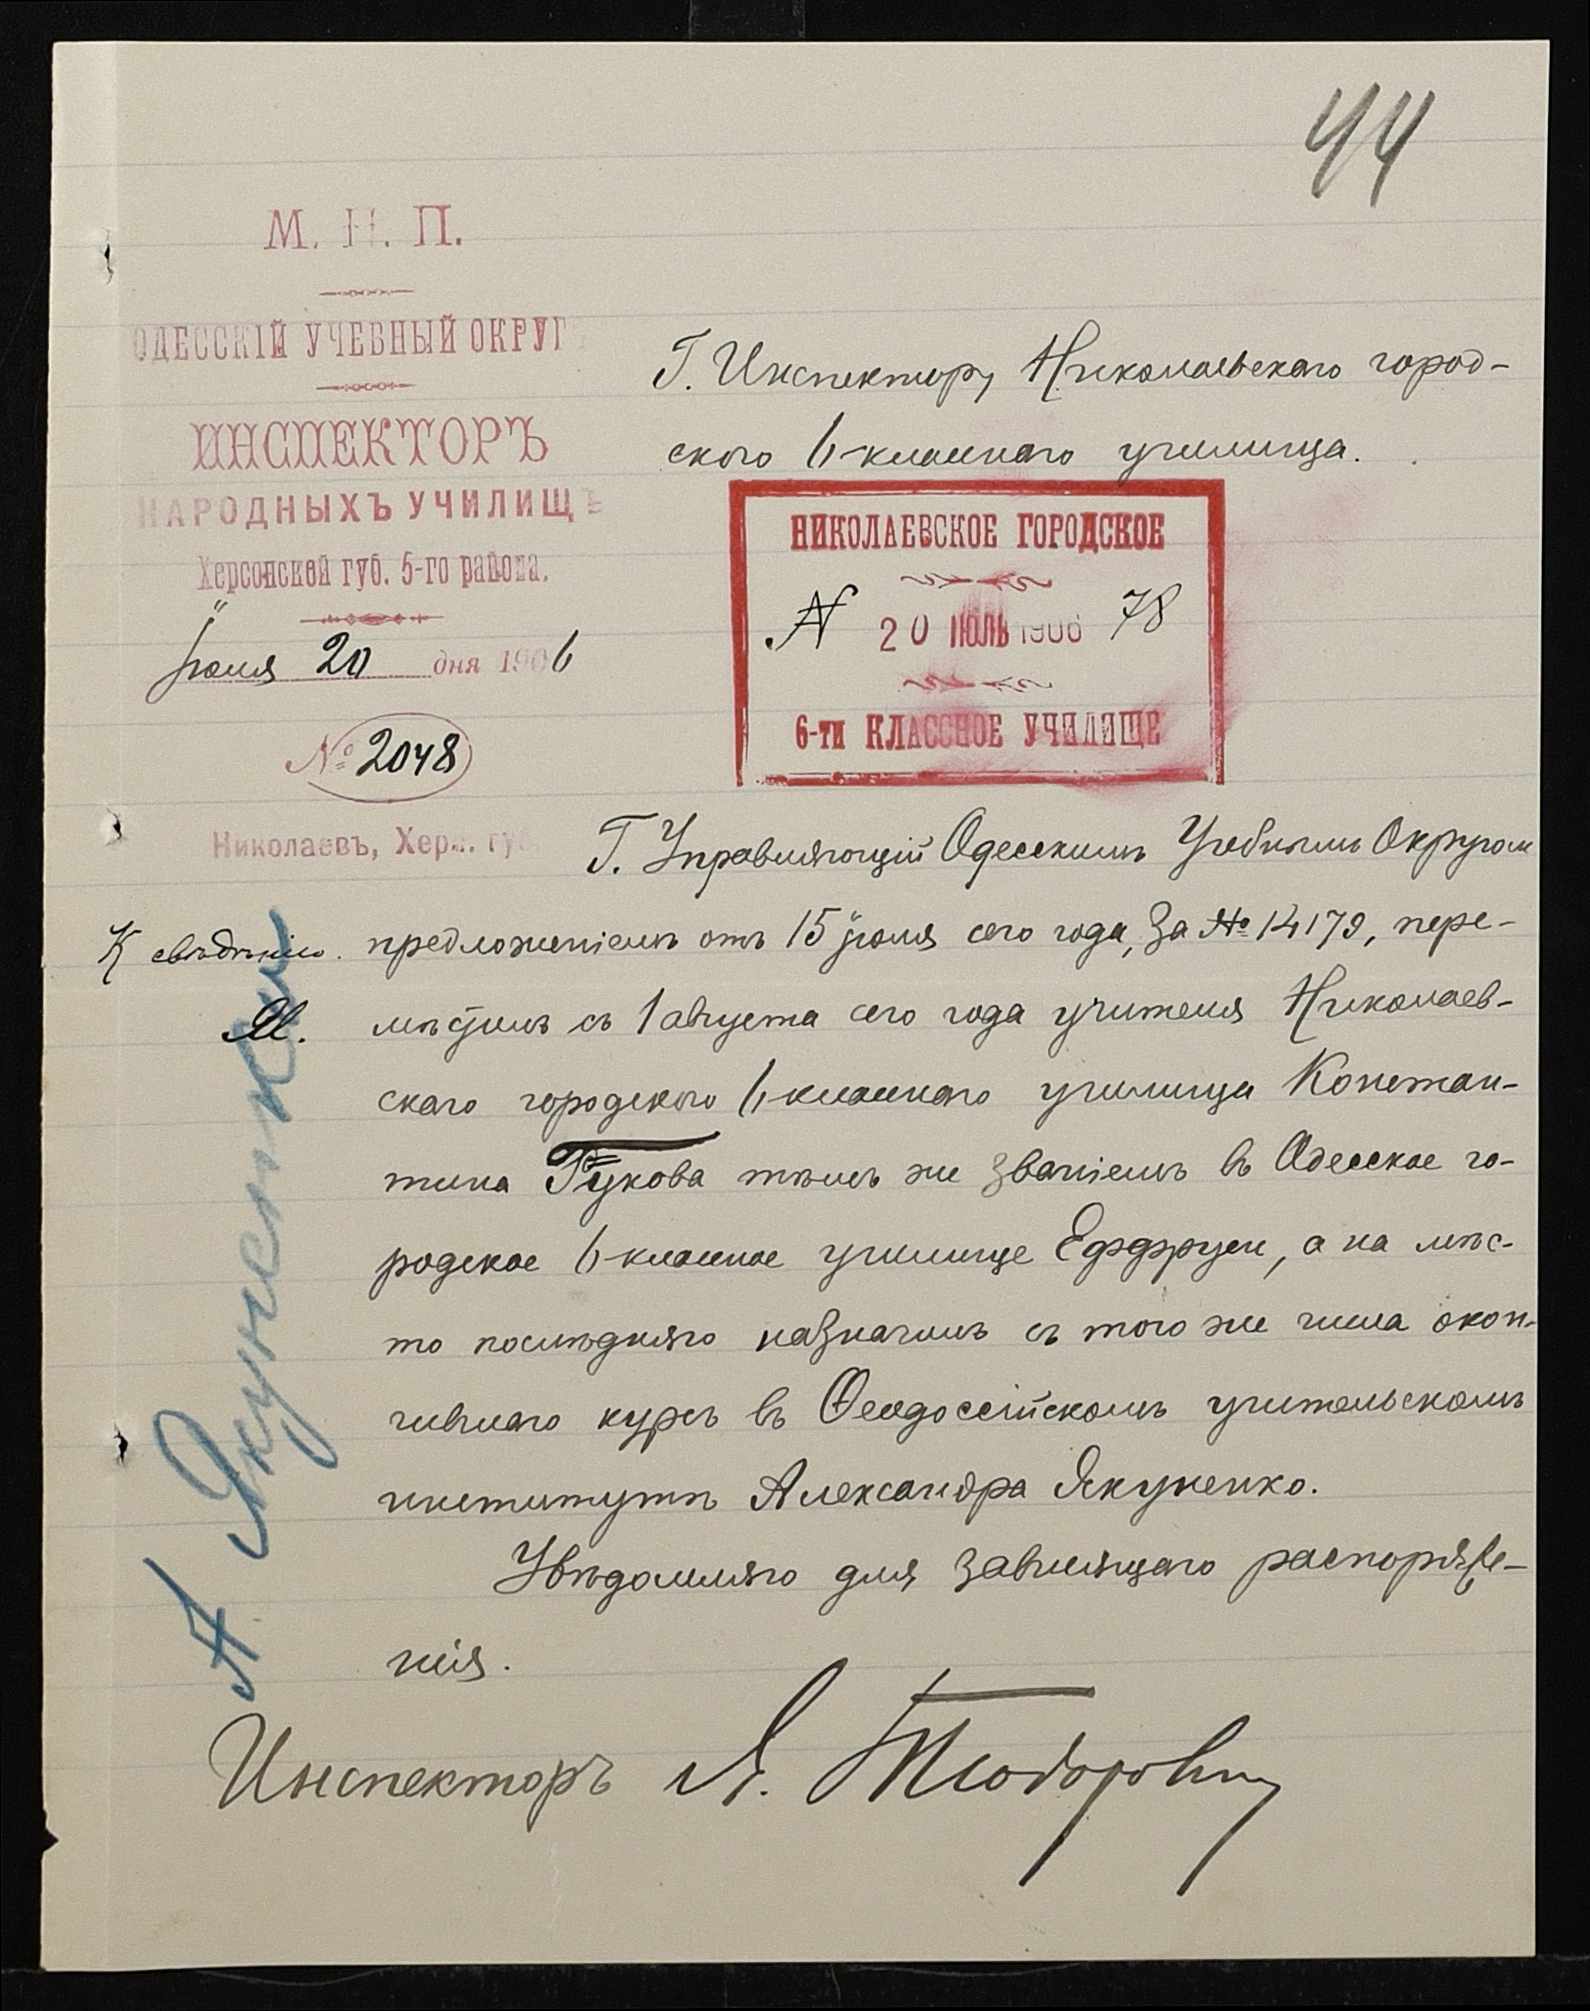 44
М. Н. П.
ОДЕССКІЙ УЧЕБНЫЙ ОКРУГ
ИНСПЕКТОРЪ
НАРОДНЫХЪ УЧИЛИЩЪ
Херсонской губ. 5-го района.
Іюля 20 дня 1906
№ 2048
Николаевъ, Херс. губ.
Г. Инспектору Николаевскаго город-
ского 6-класснаго училища.
НИКОЛАЕВСКОЕ ГОРОДСКОЕ
№ 20 ІЮЛЬ 1906 78
6-ти КЛАССНОЕ УЧИЛИЩЕ
Г. Управляющій Одесскимъ Учебнымъ Округом
К свѣдѣнію.
предложеніемъ отъ 15 іюля сего года, за № 14179, пере-
мѣстилъ съ 1 августа сего года учителя Николаев-
скаго городского 6-класснаго училища Констан-
тина Гукова тѣмъ же званіемъ въ Одесское го-
родское 6-классное училище Ефруси, а на мѣс-
то послѣдняго назначилъ съ того же числа окон-
чившаго курсъ въ Ѳеодосійскомъ учительскомъ
институтѣ Александра Якуненко.
Увѣдомляю для зависящаго распоряже-
нія.
Инспекторъ Я. Тодорович
А. Якуненко